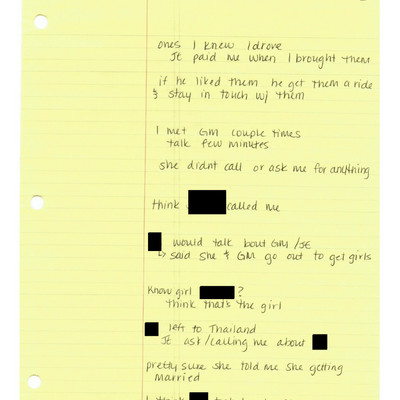 ones I knew I drove
JE paid me when I brought them
if he liked them he get them a ride
& stay in touch w/ them
I met GM couple times
talk few minutes
she didnt call or ask me for anything
think called me
would talk bout GM/JE
↳ said she & GM go out to get girls
Know girl ?
think thats the girl
left to Thailand
JE ask/calling me about
pretty sure she told me she getting
married
I think